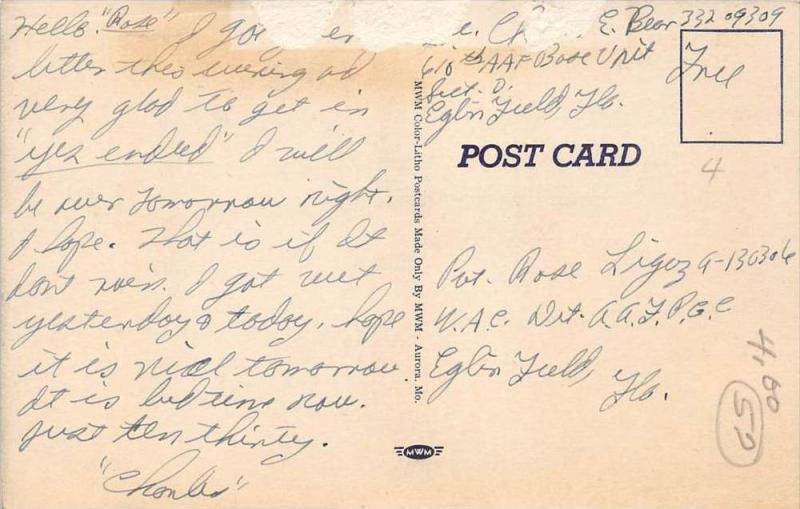 Hello. "Rose" I go er
letter this evening ad
very glad to get in
"yes ended" I will
be over tomorrow night,
I hope. That is if It
dont rain. I got wet
yesterday & today, hope
it is nice tomorrow.
It is bedtime now.
Just ten thirty.
"Charles"
E. Bear 33209309
610th AAF Base Unit
Sect. D.
Eglin Field, Fla.
Free
POST CARD
4
MWM Color-Litho Postcards Made Only By MWM - Aurora, Mo.
MWM
Pvt. Rose Ligoz A-130306
W.A.C. Det. A.A.F.P.G.C
Eglin Field, Fla.
4.00
52